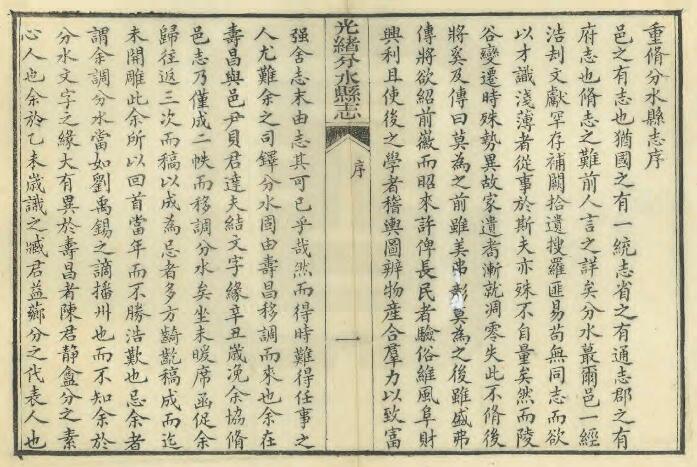 重脩分水縣志序
邑之有志也猶國之有一統志省之有通志郡之有
府志也脩志之難前人言之詳矣分水蕞爾邑一經
浩刦文獻罕存補闕拾遺搜羅匪易苟無同志而欲
以才識淺薄者從事於斯夫亦殊不自量矣然而陵
谷變遷時殊勢異故家遺耆漸就凋零失此不脩後
將奚及傳曰莫為之前雖美弗彰莫為之後雖盛弗
傳將欲紹前徽而昭來許俾長民者驗俗維風阜財
興利且使後之學者稽輿圖辨物産合羣力以致富
光緒分水縣志
序
一
强舍志末由志其可已乎哉然而得時難得任事之
人尤難余之司鐸分水固由壽昌移調而來也余在
壽昌與邑尹貝君達夫結文字緣辛丑歲浼余協脩
邑志乃僅成二帙而移調分水矣坐未暖席函促余
歸往返三次而稿以成為忌者多方齮齕稿成而迄
未開雕此余所以回首當年而不勝浩歎也忌余者
謂余調分水當如劉禹錫之謫播州也而不知余於
分水文字之緣大有異於壽昌者陳君靜盦分之素
心人也余於乙未歲識之臧君益薌分之代表人也